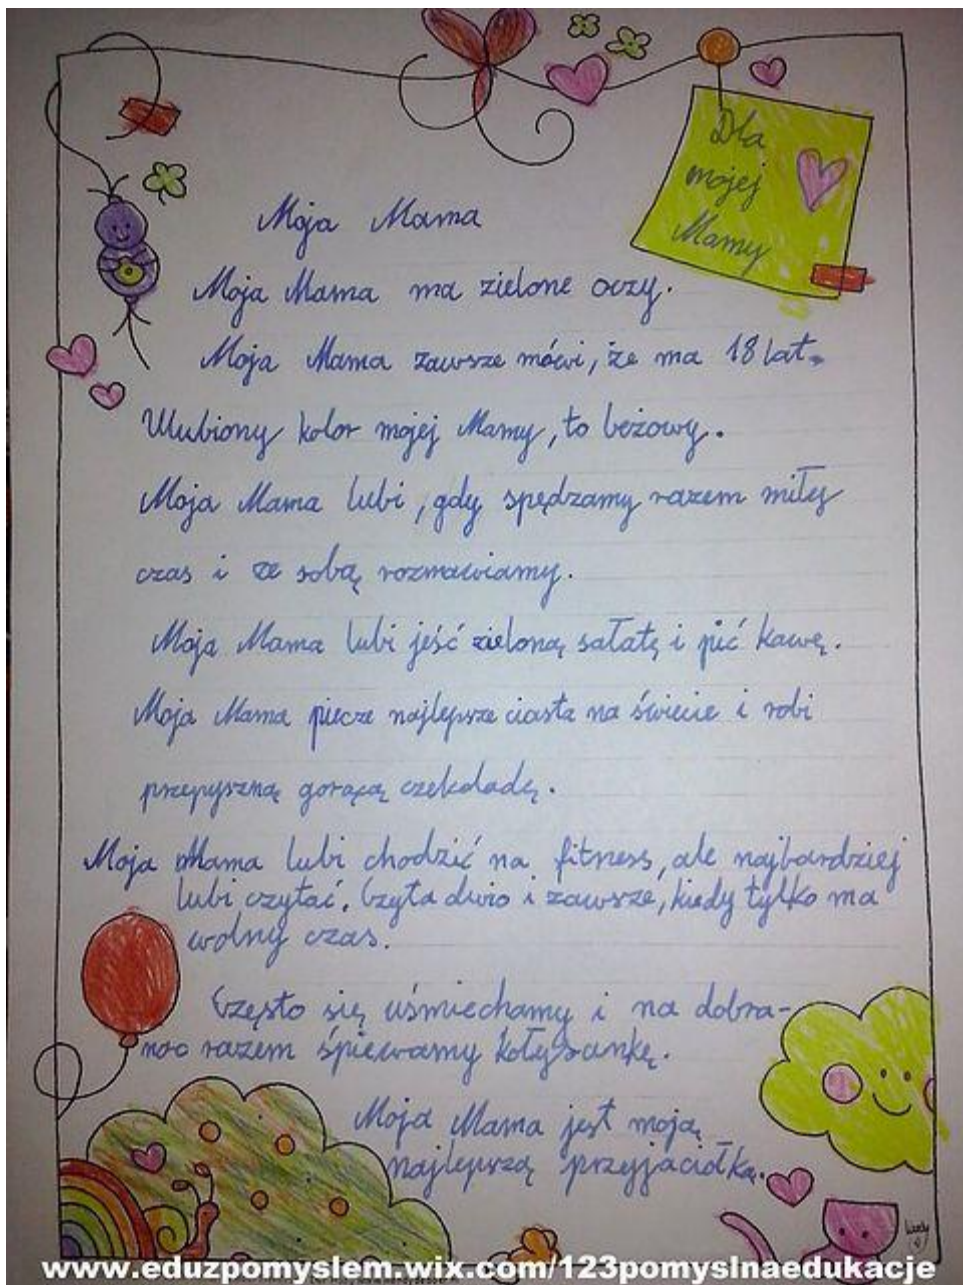 Dla
mojej
Mamy
Moja Mama
Moja Mama ma zielone oczy.
Moja Mama zawsze mówi, że ma 18 lat.
Ulubiony kolor mojej Mamy, to beżowy.
Moja Mama lubi, gdy spędzamy razem miły
czas i ze sobą rozmawiamy.
Moja Mama lubi jeść zieloną sałatę i pić kawę.
Moja Mama piecze najlepsze ciasta na świecie i robi
przepyszną gorącą czekoladę.
Moja Mama lubi chodzić na fitness, ale najbardziej
lubi czytać. Czyta dużo i zawsze, kiedy tylko ma
wolny czas.
Często się uśmiechamy i na dobra-
noc razem śpiewamy kołysankę.
Moja Mama jest moją
najlepszą przyjaciółką.
www.eduzpomyslem.wix.com/123pomyslnaedukacje